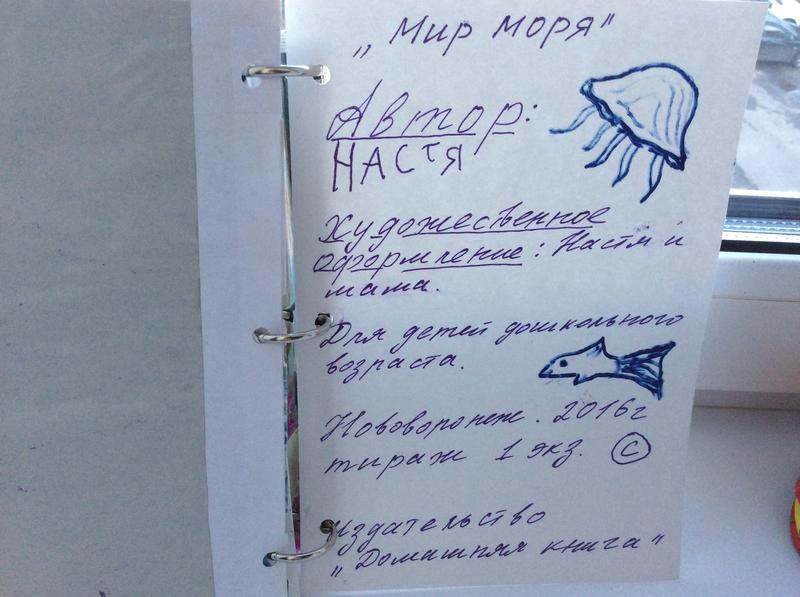 „Мир моря"
Автор:
НАСТЯ
Художественное
оформление: Настя и
мама.
Для детей дошкольного
возраста.
Нововоронеж. 2016г
тираж 1 экз. ©
издательство
„Домашняя книга"